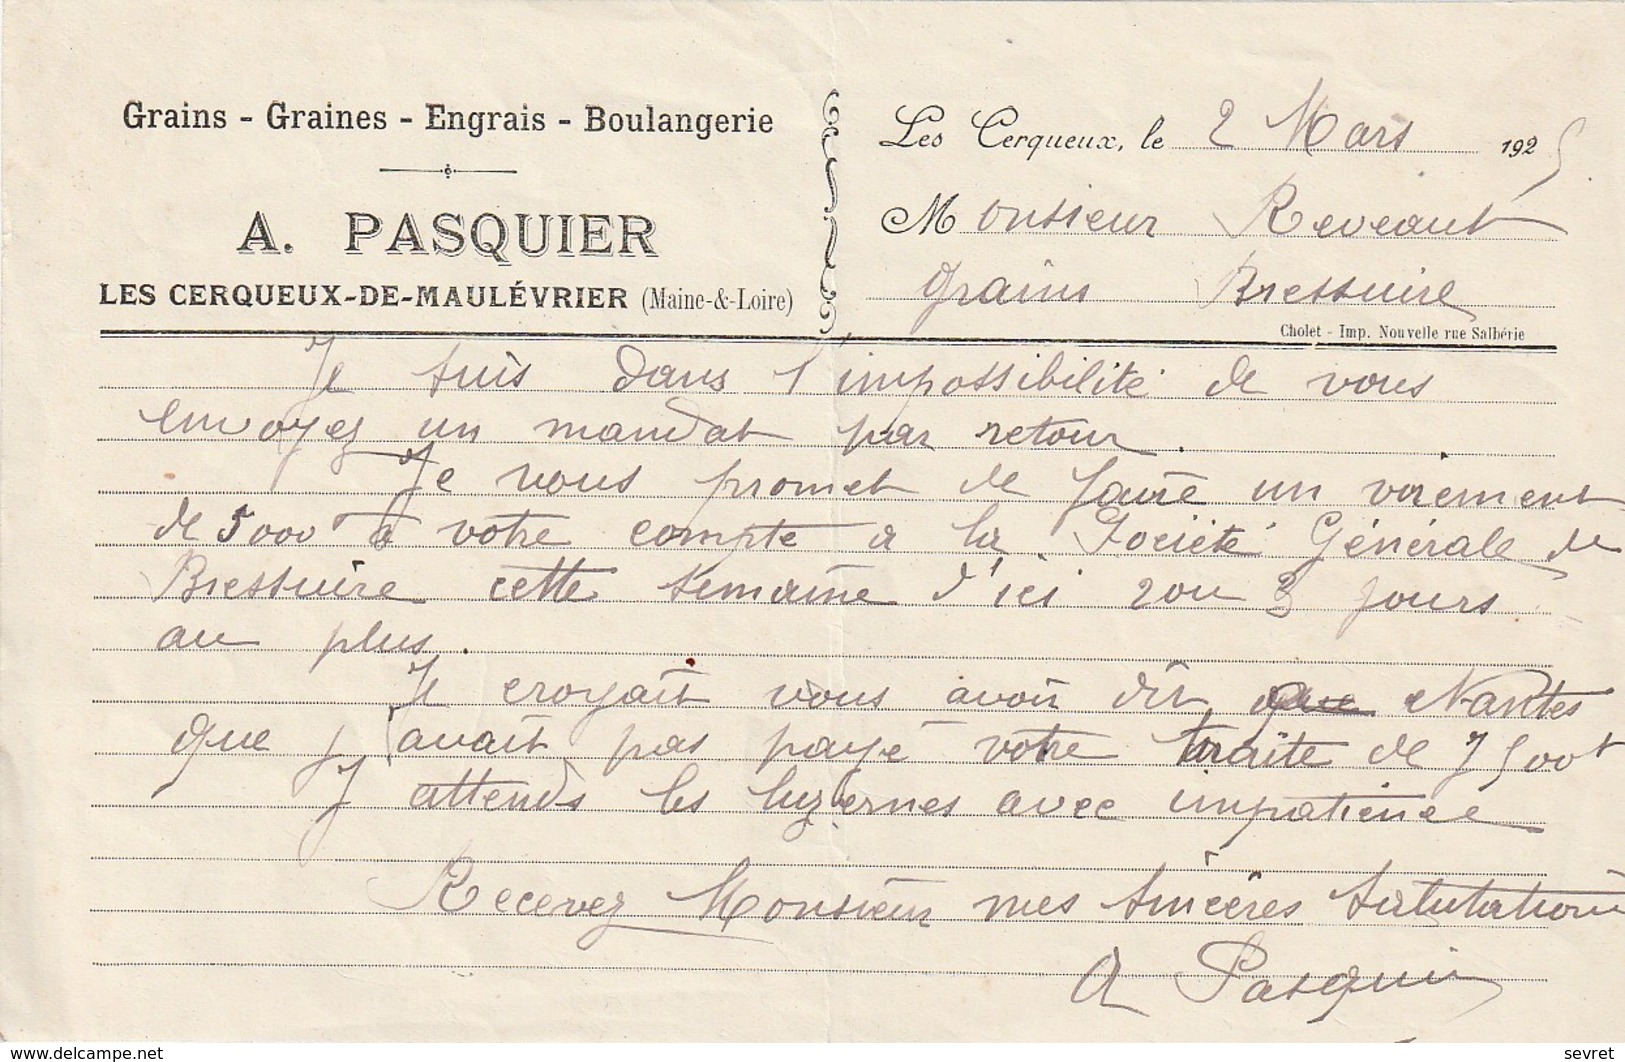 Grains - Graines - Engrais - Boulangerie
A. PASQUIER
LES CERQUEUX-DE-MAULÉVRIER (Maine-&-Loire)
Les Cerqueux, le 2 Mars 1925
Monsieur Reveaut
grains Bressuire
Cholet - Imp. Nouvelle rue Salbérie
Je suis dans l'impossibilité de vous
envoyez un mandat par retour.
Je vous promet de faire un virement
de 5000 à votre compte à la Société Générale de
Bressuire cette semaine d'ici 2 ou 3 jours
au plus.
Je croyait vous avoir dit que Nantes
que j'avait pas payé votre traite de 7500f
J attends les luzernes avec impatience
Recevez Monsieur mes sincères salutations
A Pasquier
www.delcampe.net
sevret